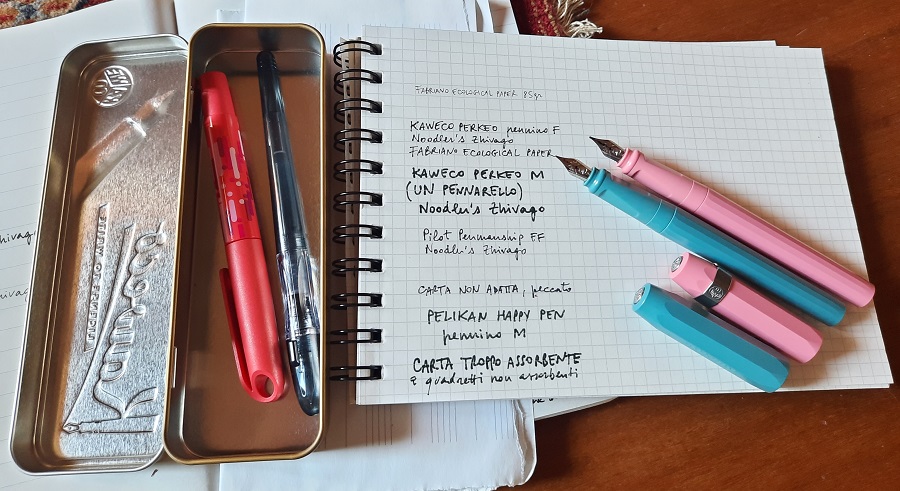 FABRIANO ECOLOGICAL PAPER 85gr
KAWECO PERKEO pennino F
Noodler's Zhivago
FABRIANO ECOLOGICAL PAPER
KAWECO PERKEO M
(UN PENNARELLO)
Noodler's Zhivago
Pilot Penmanship EF
Noodler's Zhivago
CARTA NON ADATTA, peccato
PELIKAN HAPPY PEN
pennino M
CARTA TROPPO ASSORBENTE
e quadretti non assorbenti
Kaweco
zhivago
zhivago